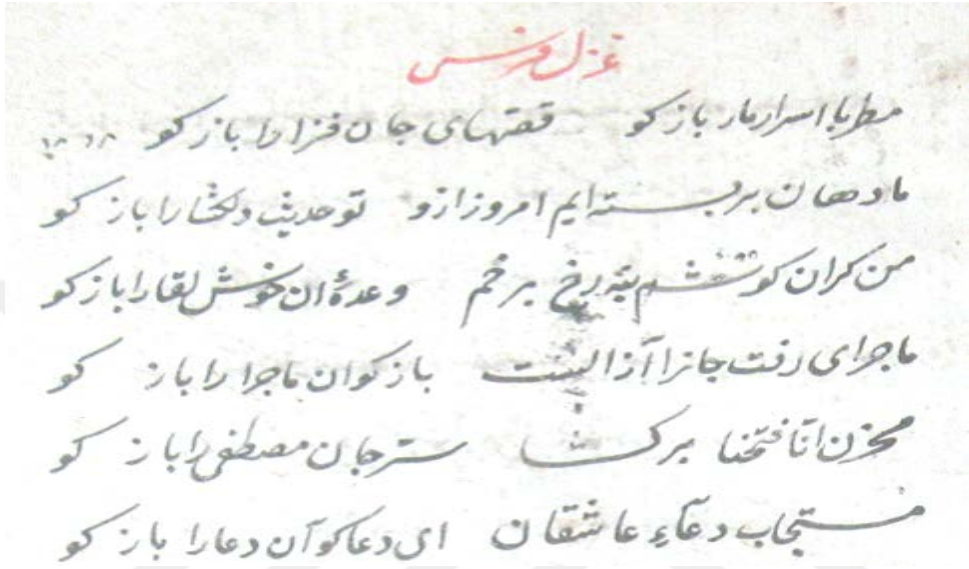 غزل فرسی
مطربا اسرار مار باز کو قصهای جان فزا را باز کو
ما دهان بر بسته ایم امروز ازو تو حدیث دلکشا را باز کو
من کران کوشم بنه رخ بر رخم وعدهٔ ان خوش لقا را باز کو
ماجرای رفت جانرا آز الست باز کوان ماجرا را باز کو
مخزن انا فتحنا بر کشا سر جان مصطفی را باز کو
مستجاب دعآءِ عاشقان ای دعا کو آن دعا را باز کو